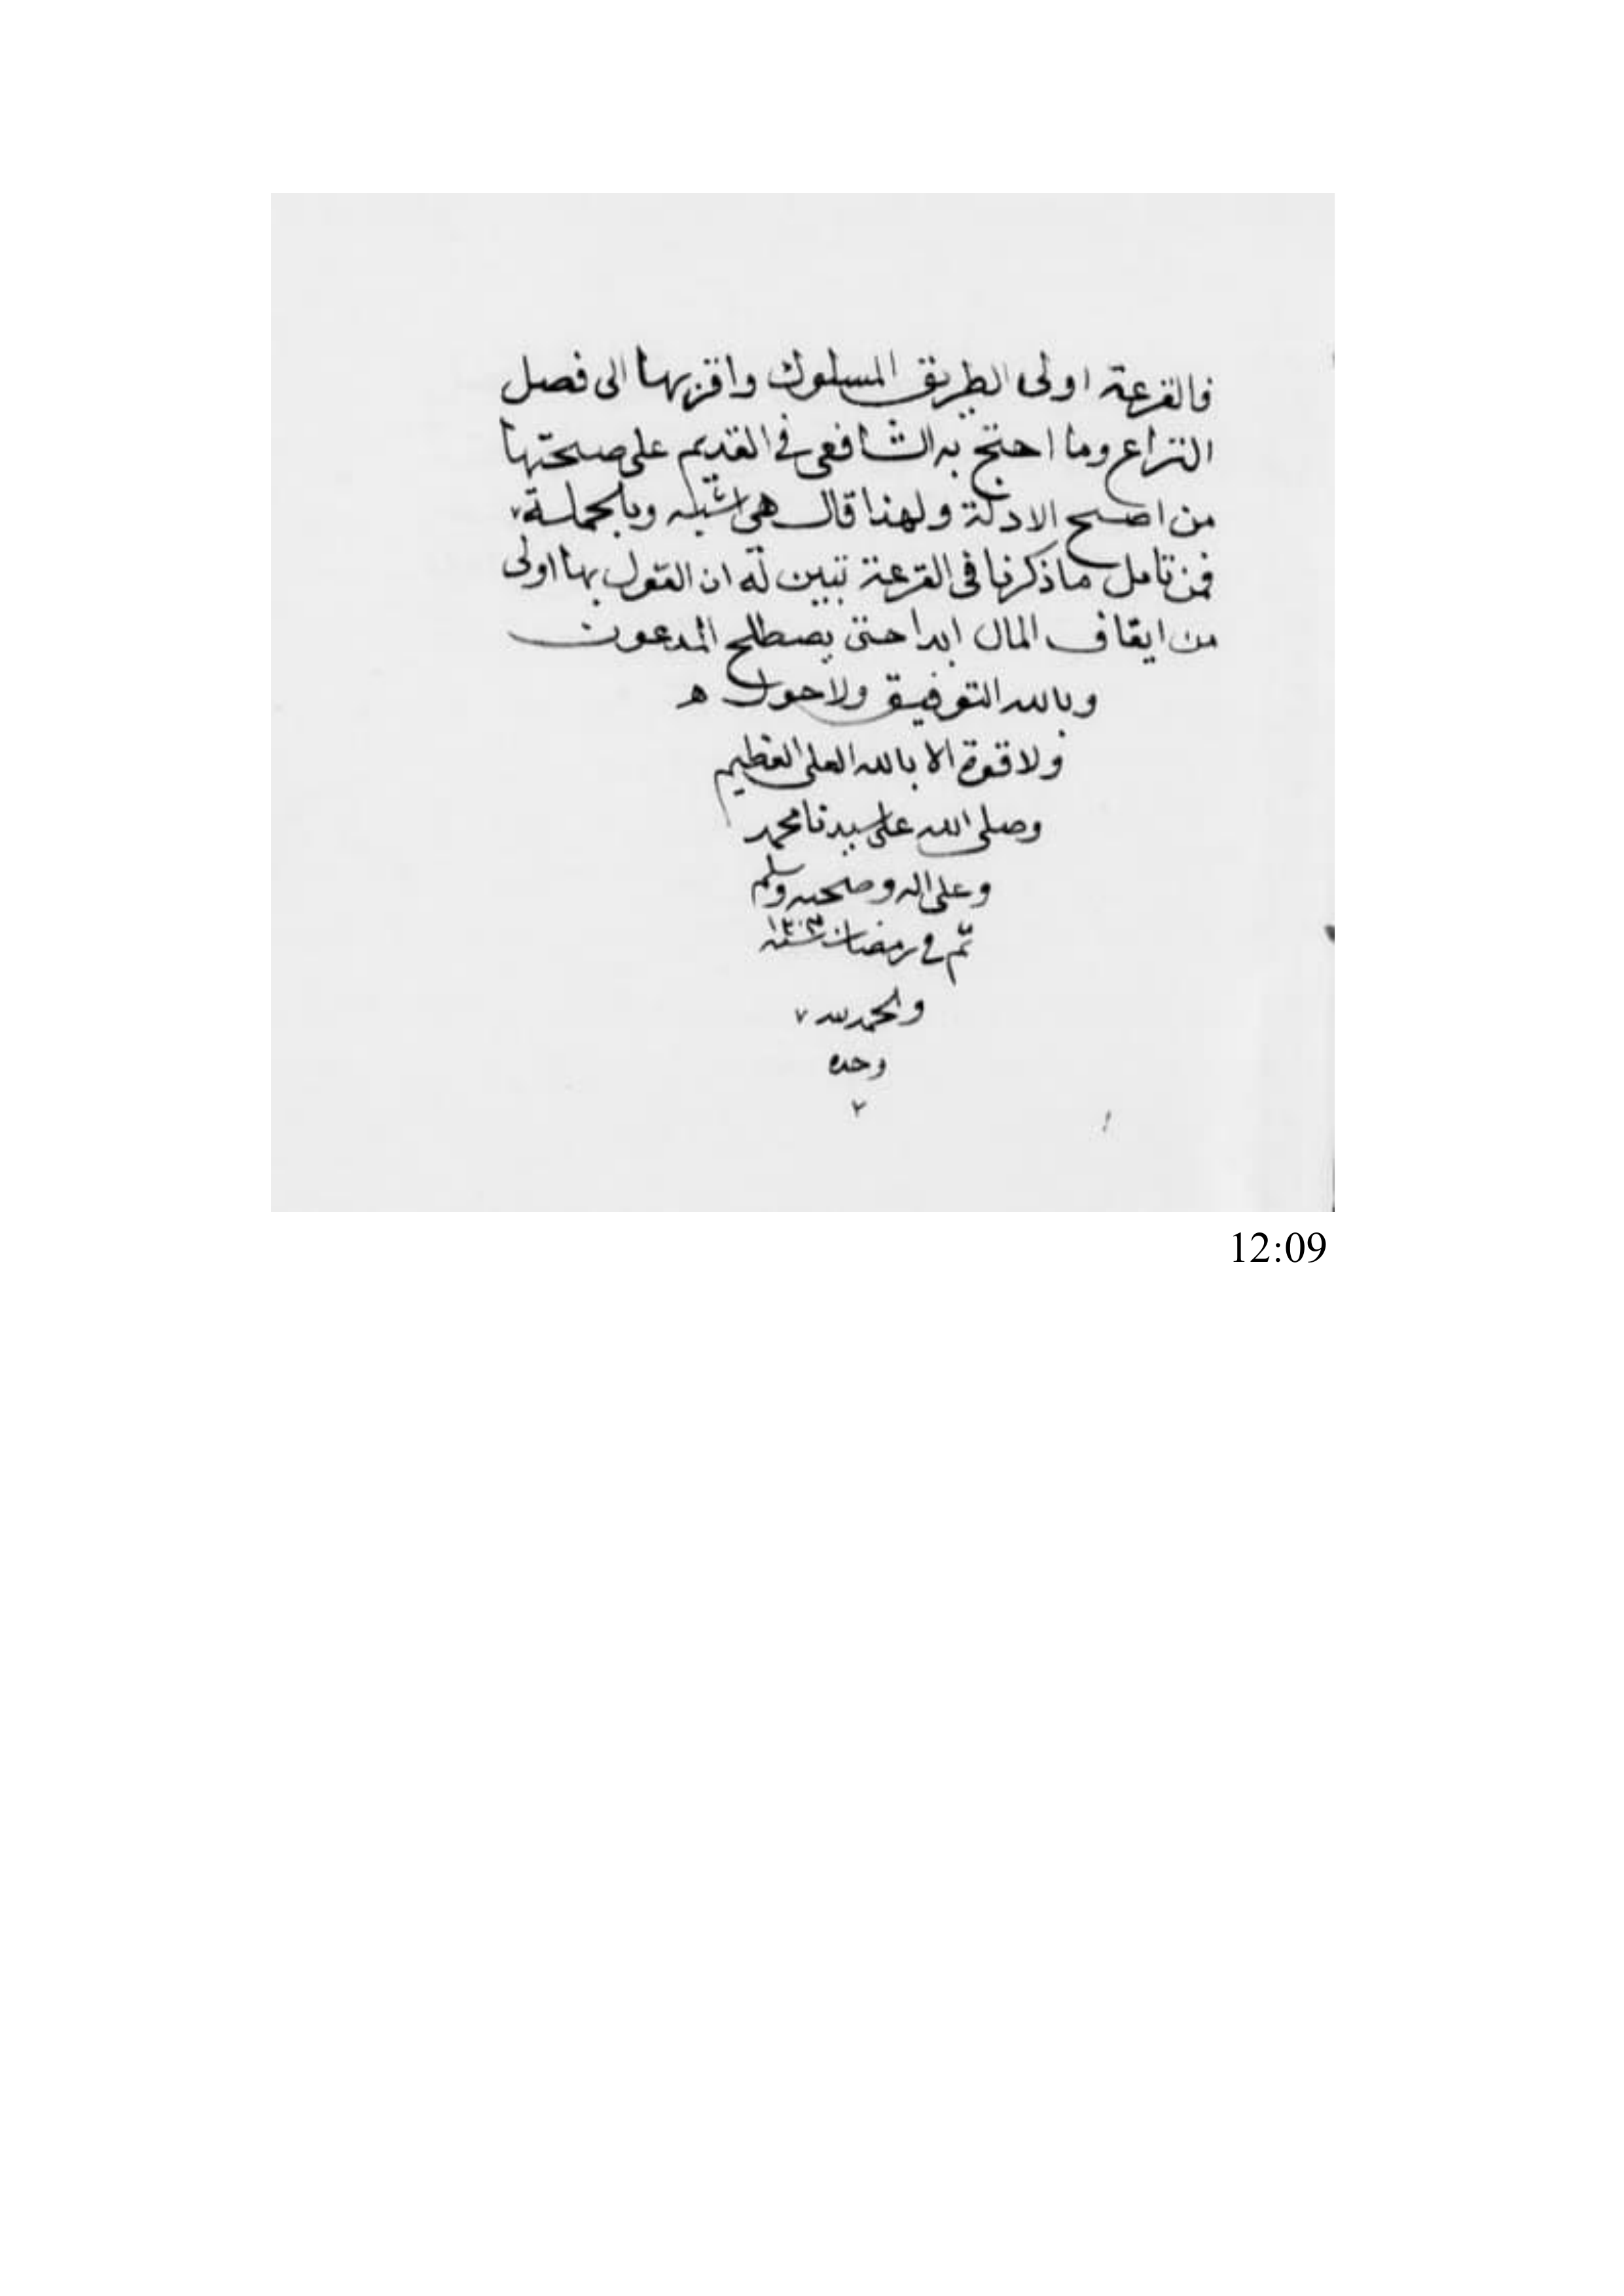 فالقرعة اولى الطريق المسلوك واقربها الى فصل
النزاع وما احتج به الشافعى في القديم على صحتها
من اصح الادلة ولهذا قال هى اشبه وبالجملة
فمن تامل ما ذكرنا فى القرعة تبين له ان القول بها اولى
من ايقاف المال ابدا حتى يصطلح المدعون
وبالله التوفيق ولا حول ه
ولا قوة الا بالله العلى العظيم
وصلى الله على سيدنا محمد
وعلى اله وصحبه وسلم
تم في رمضان سنة ١٣٠٣
والحمد لله
وحده
12:09